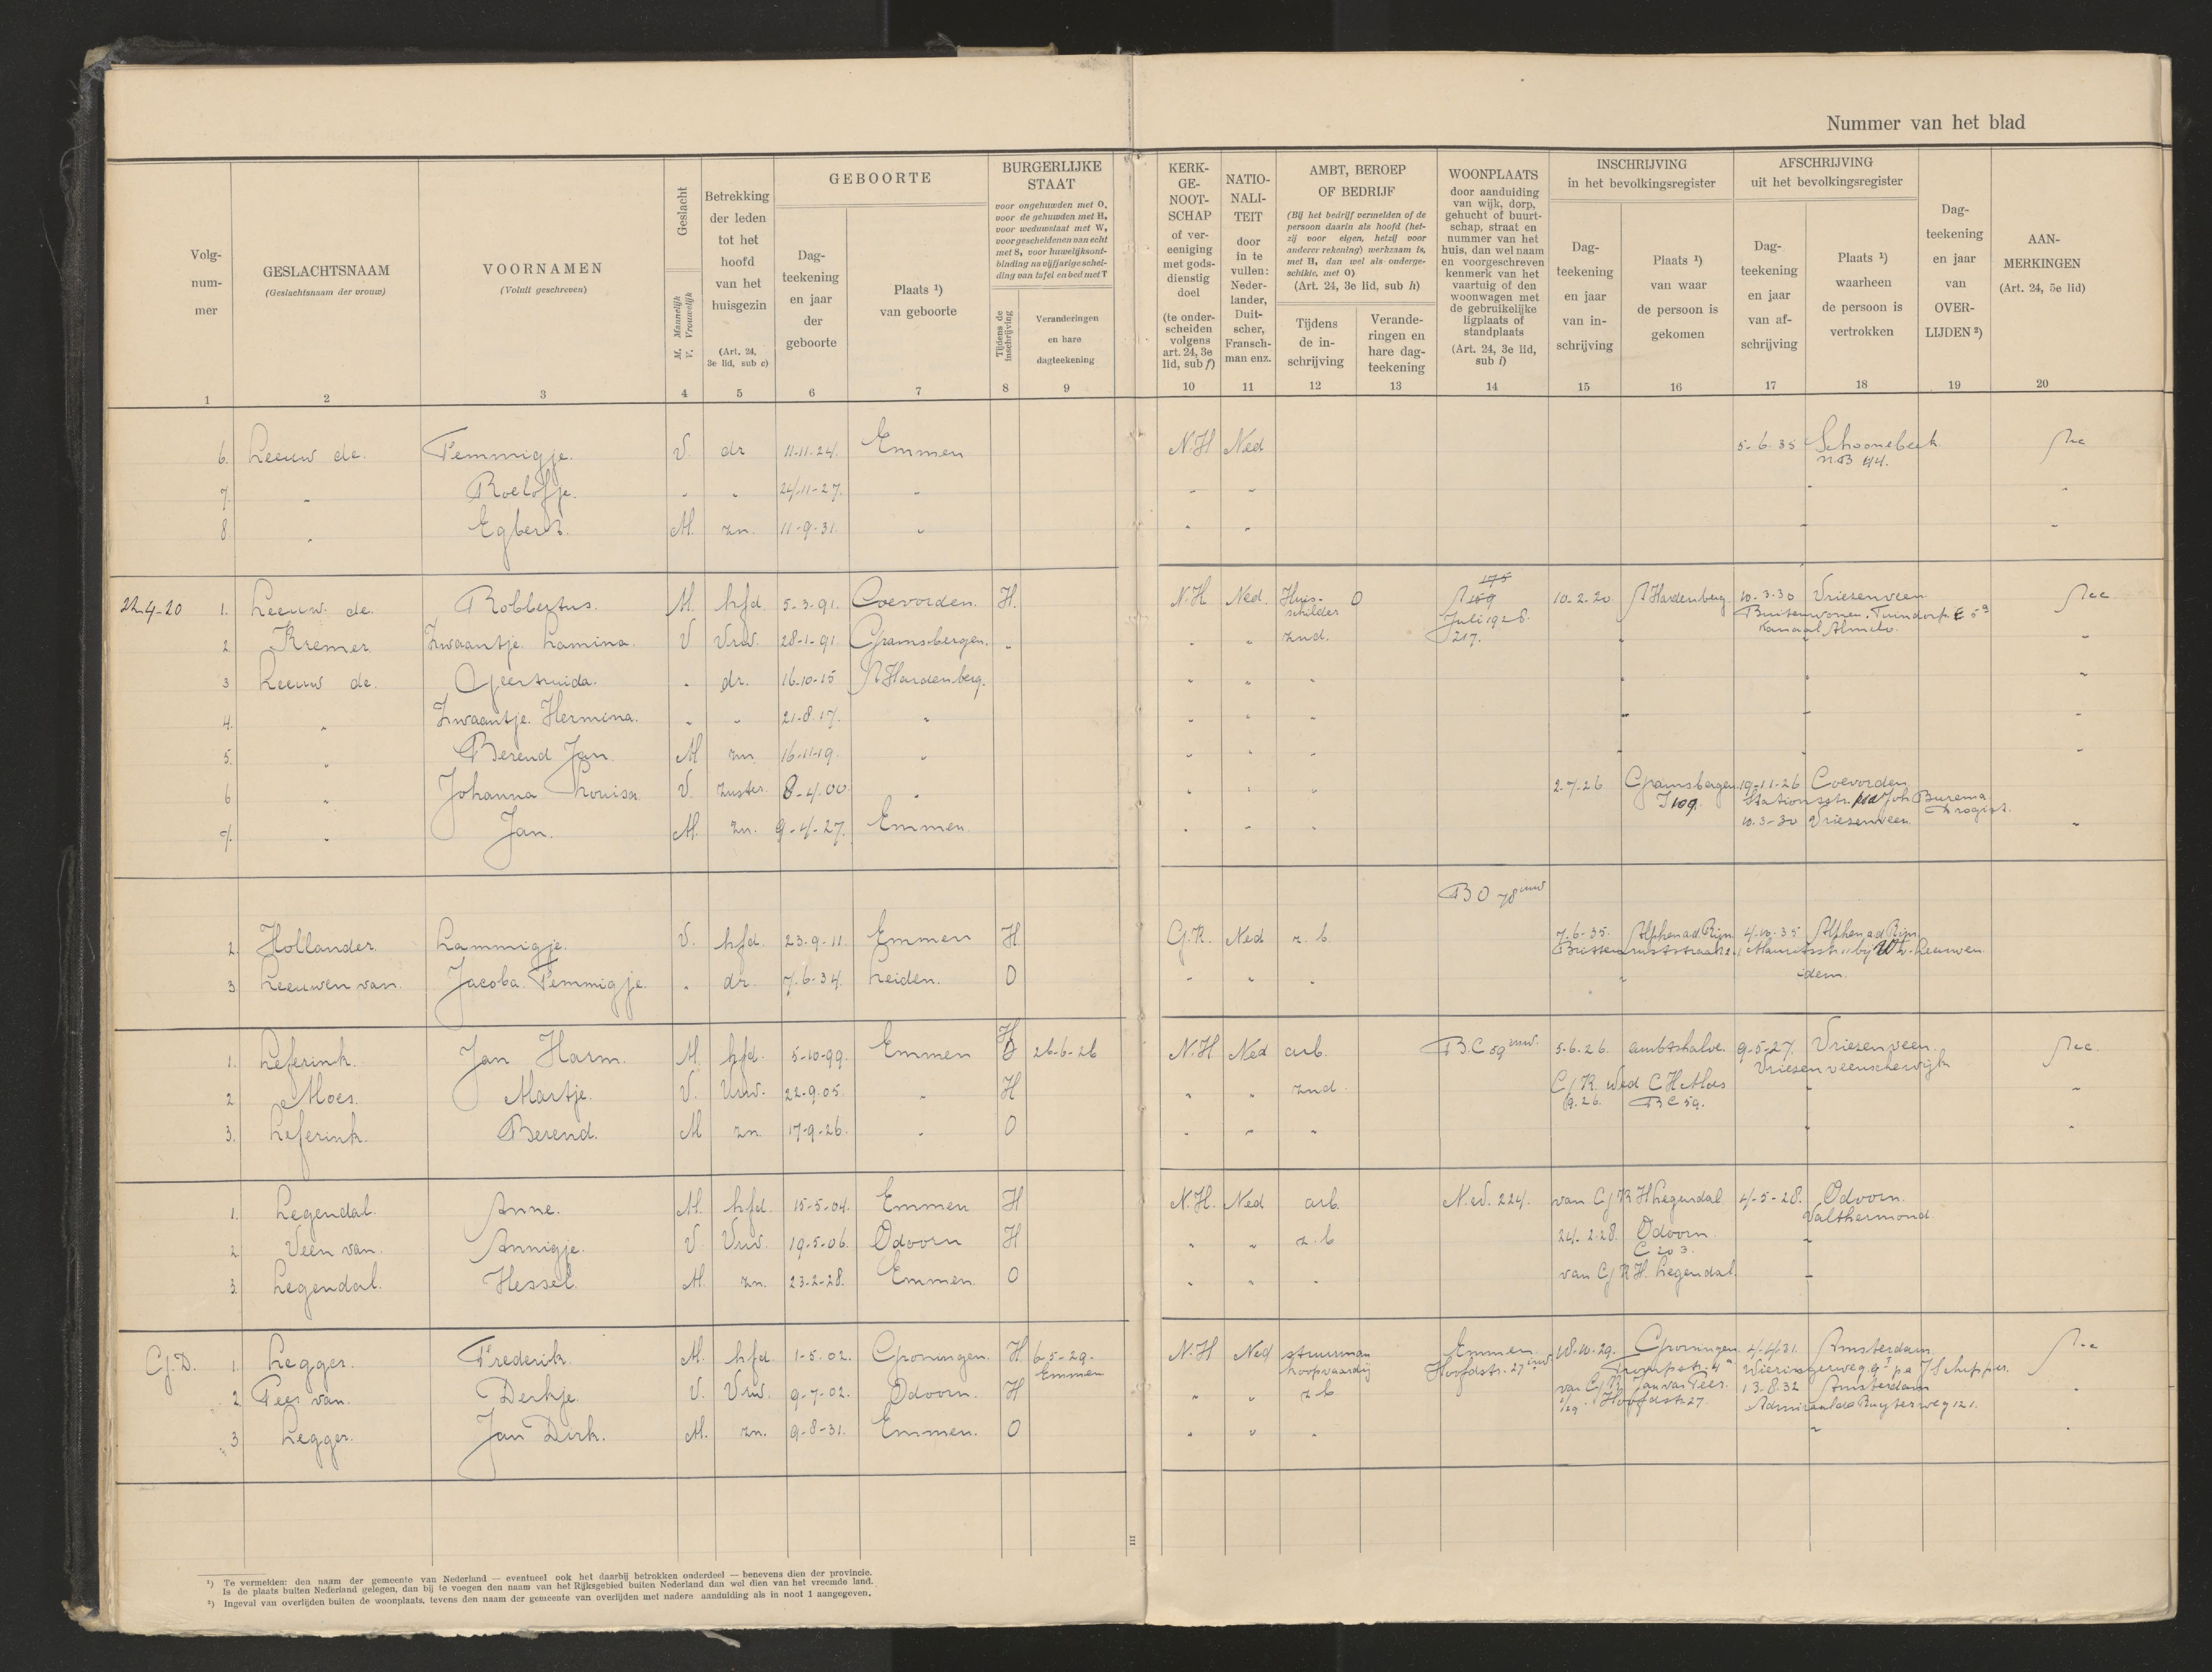 Nummer van het blad
Volg-
num-
mer
1
GESLACHTSNAAM
(Geslachtsnaam der vrouw)
2
VOORNAMEN
(Voluit geschreven)
3
Geslacht
M. Mannelijk
V. Vrouwelijk
4
Betrekking
der leden
tot het
hoofd
van het
huisgezin
(Art. 24,
3e lid, sub c)
5
GEBOORTE
Dag-
teekening
en jaar
der
geboorte
6
Plaats ¹)
van geboorte
7
BURGERLIJKE
STAAT
voor ongehuwden met O,
voor de gehuwden met H,
voor weduwstaat met W,
voor gescheidenen van echt
met S, voor huwelijksont-
binding na vijfjarige schei-
ding van tafel en bed met T
Tijdens de
inschrijving
8
Veranderingen
en hare
dagteekening
9
KERK-
GE-
NOOT-
SCHAP
of ver-
eeniging
met gods-
dienstig
doel
(te onder-
scheiden
volgens
art. 24, 3e
lid, sub f)
10
NATIO-
NALI-
TEIT
door
in te
vullen:
Neder-
lander,
Duit-
scher,
Fransch-
man enz.
11
AMBT, BEROEP
OF BEDRIJF
(Bij het bedrijf vermelden of de
persoon daarin als hoofd (het-
zij voor eigen, hetzij voor
anderer rekening) werkzaam is,
met H, dan wel als onderge-
schikte, met O)
(Art. 24, 3e lid, sub h)
Tijdens
de in-
schrijving
12
Verande-
ringen en
hare dag-
teekening
13
WOONPLAATS
door aanduiding
van wijk, dorp,
gehucht of buurt-
schap, straat en
nummer van het
huis, dan wel naam
en voorgeschreven
kenmerk van het
vaartuig of den
woonwagen met
de gebruikelijke
ligplaats of
standplaats
(Art. 24, 3e lid,
sub i)
14
INSCHRIJVING
in het bevolkingsregister
Dag-
teekening
en jaar
van in-
schrijving
15
Plaats ¹)
van waar
de persoon is
gekomen
16
AFSCHRIJVING
uit het bevolkingsregister
Dag-
teekening
en jaar
van af-
schrijving
17
Plaats ¹)
waarheen
de persoon is
vertrokken
18
Dag-
teekening
en jaar
van
OVER-
LIJDEN ²)
19
AAN-
MERKINGEN
(Art. 24, 5e lid)
20
6. Leeuw de. Femmigje. V. dr 11-11-24. Emmen N.H Ned 5-6-35 Schoonebeek
n.B 44.
7 " Roelofje. " " 24-11-27. " " " " "
8 " Egbert. M. zn. 11-9-31. " " " " "
22-4-20 1. Leeuw de. Robbertus. M. hfd. 5-3-91. Coevorden. H. N.H Ned. Huis-
schilder O 175
159
Juli 1928.
217. 10-2-20 Hardenberg 10-3-30 Vriezenveen
Buitenwonen. Tuindorp. E 5a
Kanaal Almelo.
2 Kremer Zwaantje Lamina. V Vrw. 28-1-91. Gramsbergen. " " " znd. " " "
3 Leeuw de. Geertruida. " dr. 16-10-15 Hardenberg. " " " " " "
4. " Zwaantje Hermina. " " 21-8-17. " " " " " " "
5. " Berend Jan M zn. 16-11-19. " " " " " " "
6 " Johanna Louisa V. zuster 8-4-00 " " " " 2-7-26 Gramsbergen
I 109. 19-11-26 Coevorden
Stationsstr. Joh Burema
Drogist.
7. " Jan. M. zn. 9-4-27. Emmen. " " " 10-3-30 Vriezenveen "
B O 78
2 Hollander. Lammigje. V. hfd. 23-9-11. Emmen H G.K. Ned z.b. 7-6-35. Alphen ad Rijn 4-10-35 Alphen ad Rijn.
3 Leeuwen van. Jacoba Femmigje. " dr. 7-6-34. Leiden. O " " " " idem.
1. Leferink. Jan Harm. M. hfd. 5-10-99. Emmen H 26-6-26 N.H Ned arb. B.C 59 5-6-26. ambtshalve. 9-5-27. Vriezenveen.
Vriezenveenschewijk
2 Moes. Martje. V. Vrw. 22-9-05. " H " " znd. G.K. wed C H Moes
B C 59. " "
3. Leferink. Berend. M zn. 17-9-26. " O " " " " "
1. Legendal. Anne. M. hfd. 15-5-04. Emmen H N.H. Ned arb. 224. van G.K H Legendal. 4-5-28. Odoorn.
Valthermond
2 Veen van. Annigje. V. Vrw. 19-5-06. Odoorn H " " z.b 24-2-28. Odoorn
C 203. "
3. Legendal. Hessel. M. zn. 23-2-28. Emmen. O " " " van G.K H. Legendal. "
G.D. 1. Legger. Frederik. M. hfd. 1-5-02. Groningen. H 6-5-29.
Emmen N.H Ned stuurman
koopvaardij Emmen
Hoofdstr. 27 18-10-29. Groningen 4-4-31. Amsterdam
2. Pees van. Derkje. V. Vrw. 9-7-02. Odoorn. H " " z b van G.K. Jan van Pees.
Hoofdstr 27. 13-8-32 Amsterdam
Admiraal de Ruyterweg 121.
3 Legger. Jan Dirk. M. zn. 9-8-31. Emmen. O " " " "
III
¹) Te vermelden: den naam der gemeente van Nederland — eventueel ook het daarbij betrokken onderdeel — benevens dien der provincie.
Is de plaats buiten Nederland gelegen, dan bij te voegen den naam van het Rijksgebied buiten Nederland dan wel dien van het vreemde land.
²) Ingeval van overlijden buiten de woonplaats, tevens den naam der gemeente van overlijden met nadere aanduiding als in noot 1 aangegeven.